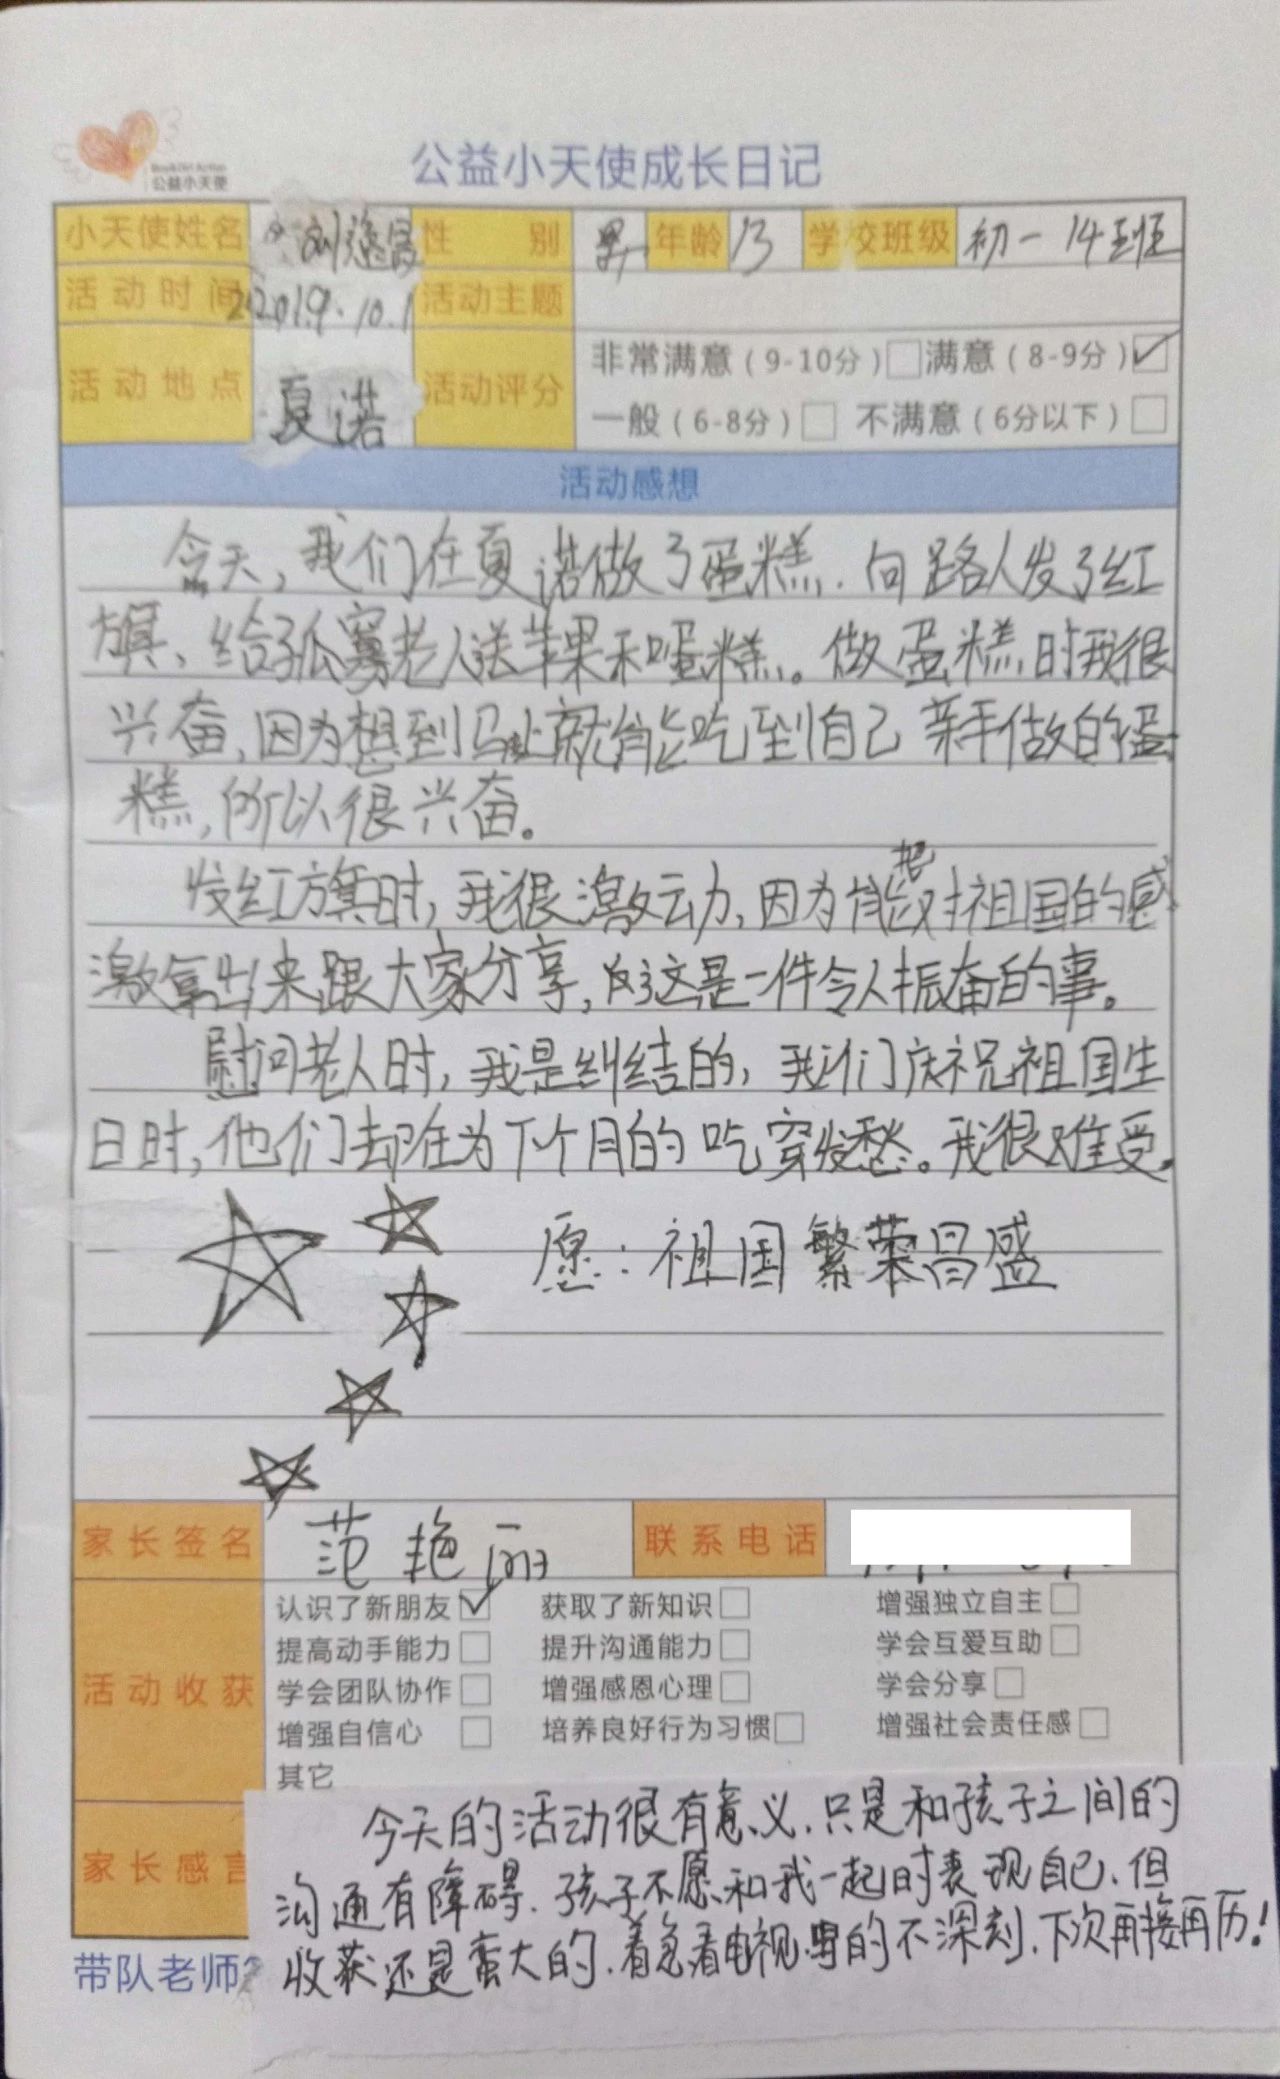 公益小天使
公益小天使成长日记
小天使姓名 刘 性别 男 年龄 13 学校班级 初一 14班
活动时间 2019.10.1 活动主题
活动地点 夏诺 活动评分 非常满意(9-10分)□ 满意(8-9分)☑
一般(6-8分)□ 不满意(6分以下)□
活动感想
今天,我们在夏诺做了蛋糕、向路人发了红
旗、给孤寡老人送苹果和蛋糕。做蛋糕时我很
兴奋,因为想到马上就能吃到自己亲手做的蛋
糕,所以很兴奋。
发红旗时,我很激动,因为能把对祖国的感
激拿出来跟大家分享,这是一件令人振奋的事。
慰问老人时,我是纠结的,我们庆祝祖国生
日时,他们却在为下个月的吃穿发愁。我很难受。
愿:祖国繁荣昌盛
家长签名 范艳丽 联系电话
活动收获 认识了新朋友☑ 获取了新知识□ 增强独立自主□
提高动手能力□ 提升沟通能力□ 学会互爱互助□
学会团队协作□ 增强感恩心理□ 学会分享□
增强自信心□ 培养良好行为习惯□ 增强社会责任感□
其它
家长感言 今天的活动很有意义,只是和孩子之间的
沟通有障碍,孩子不愿和我一起时表现自己,但
收获还是蛮大的,着急看电视,写的不深刻,下次再接再历!
带队老师